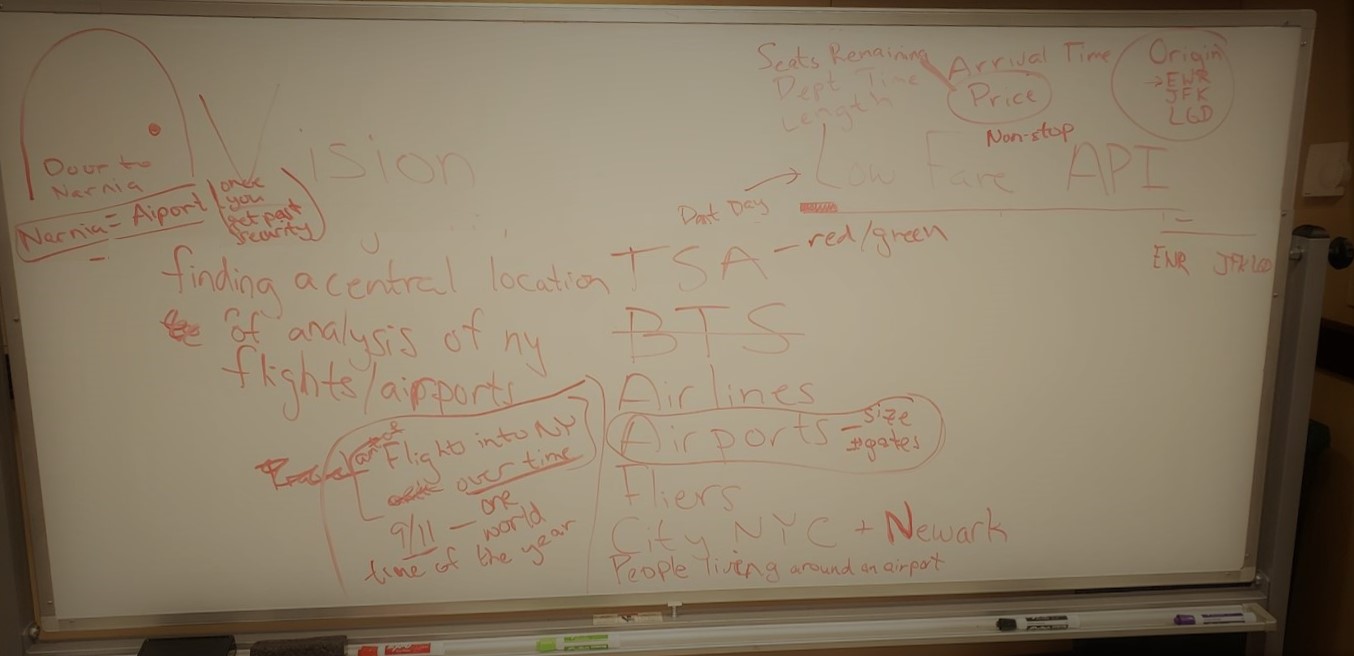 Door to
Narnia
Narnia = Aiport
once
you
get past
security
Vision
finding a central location
of analysis of ny
flights/airports
Flights into NY
over time
9/11 — one
world
time of the year
Seats Remaining
Dept Time
Length
Arrival Time
Price
Non-stop
Origin
→ EWR
JFK
LGD
Low Fare API
Day
TSA — red/green
BTS
Airlines
Airports — size
#gates
Fliers
City NYC + Newark
People living around an airport
JFK LGD